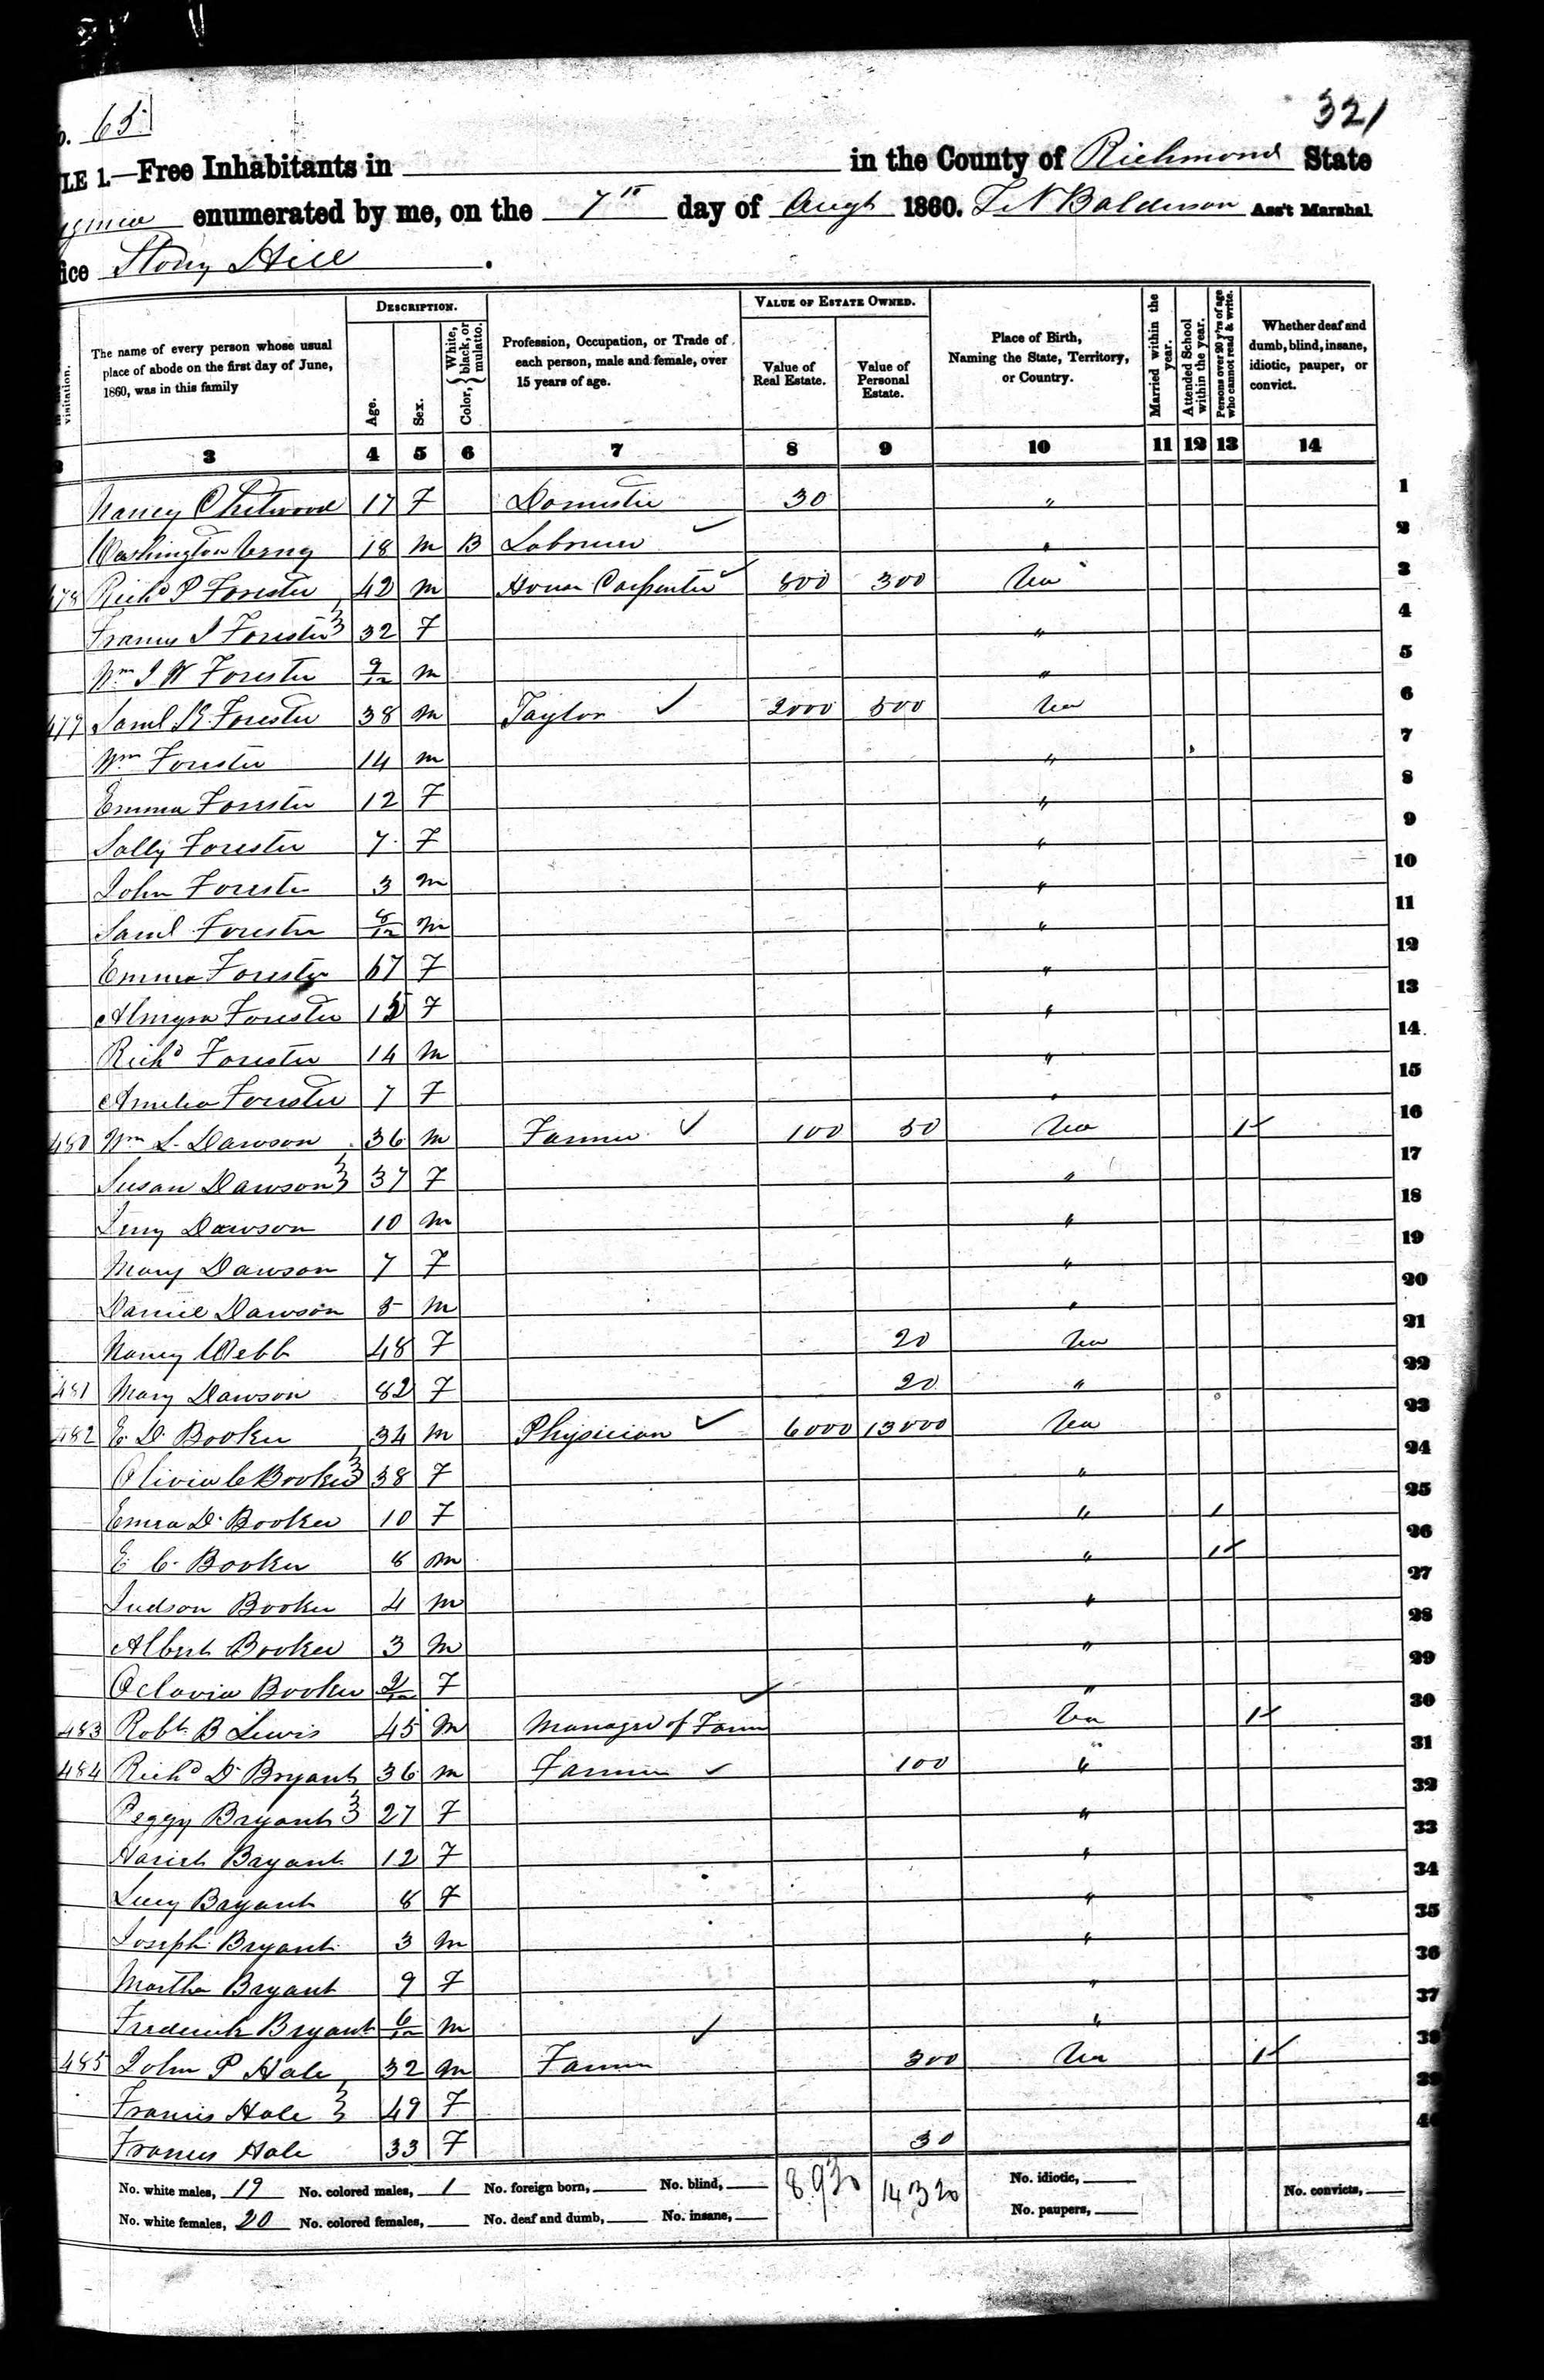 o. 65
321
LE 1.—Free Inhabitants in in the County of Richmond State
enumerated by me, on the 7th day of Augt 1860. T N Balderson Ass't Marshal
ice Stony Hill .
visitation.
The name of every person whose usual place of abode on the first day of June, 1860, was in this family
DESCRIPTION.
Age.
Sex.
Color, { White, black, or mulatto.
Profession, Occupation, or Trade of each person, male and female, over 15 years of age.
VALUE OF ESTATE OWNED.
Value of Real Estate.
Value of Personal Estate.
Place of Birth, Naming the State, Territory, or Country.
Married within the year.
Attended School within the year.
Persons over 20 y'rs of age who cannot read & write.
Whether deaf and dumb, blind, insane, idiotic, pauper, or convict.
3 4 5 6 7 8 9 10 11 12 13 14
Nancy Chitwood 17 F Domestic 30 " 1
Washington 18 M B Labourer " 2
478 Richd P Forester 42 M House Carpenter 800 300 Va 3
Frances J Forester 32 F " 4
Wm J W Forester 9/12 M " 5
479 Saml Forester 38 M Taylor 2000 500 Va 6
Wm Forester 14 M " 7
Emma Forester 12 F " 8
Sally Forester 7 F " 9
John Forester 3 M " 10
Saml Forester 8/12 M " 11
Emma Forester 67 F " 12
Forester F " 13
Richd Forester 14 M " 14
Amelia Forester 7 F " 15
480 Wm L. Dawson 36 M Farmer 100 50 Va 1 16
Susan Dawson 37 F " 17
Dawson 10 M " 18
Mary Dawson 7 F " 19
Daniel Dawson M " 20
Nancy Webb 48 F 20 Va 21
481 Mary Dawson 82 F 20 " 22
482 E. D. Booker 34 M Physician 6000 13000 Va 23
Olivia C Booker 38 F " 24
D. Booker 10 F " 1 25
E. C. Booker 8 M " 1 26
Judson Booker 4 M " 27
Albert Booker 3 M " 28
Octavia Booker F " 29
483 Robt B Lewis 45 M Manager of Farm Va 1 30
484 Richd D Bryant 36 M Farmer 100 " 31
Peggy Bryant 27 F " 32
Hariet Bryant 12 F " 33
Lucy Bryant 8 F " 34
Joseph Bryant 3 M " 35
Martha Bryant 9 F " 36
Frederick Bryant 6/12 M " 37
485 John P Hale 32 M Farmer 300 Va 1 38
Francis Hale 49 F 39
Frances Hale 33 F 30 40
No. white males, 19 No. colored males, 1 No. foreign born, No. blind, 8930 14320 No. idiotic, No. convicts,
No. white females, 20 No. colored females, No. deaf and dumb, No. insane, No. paupers,